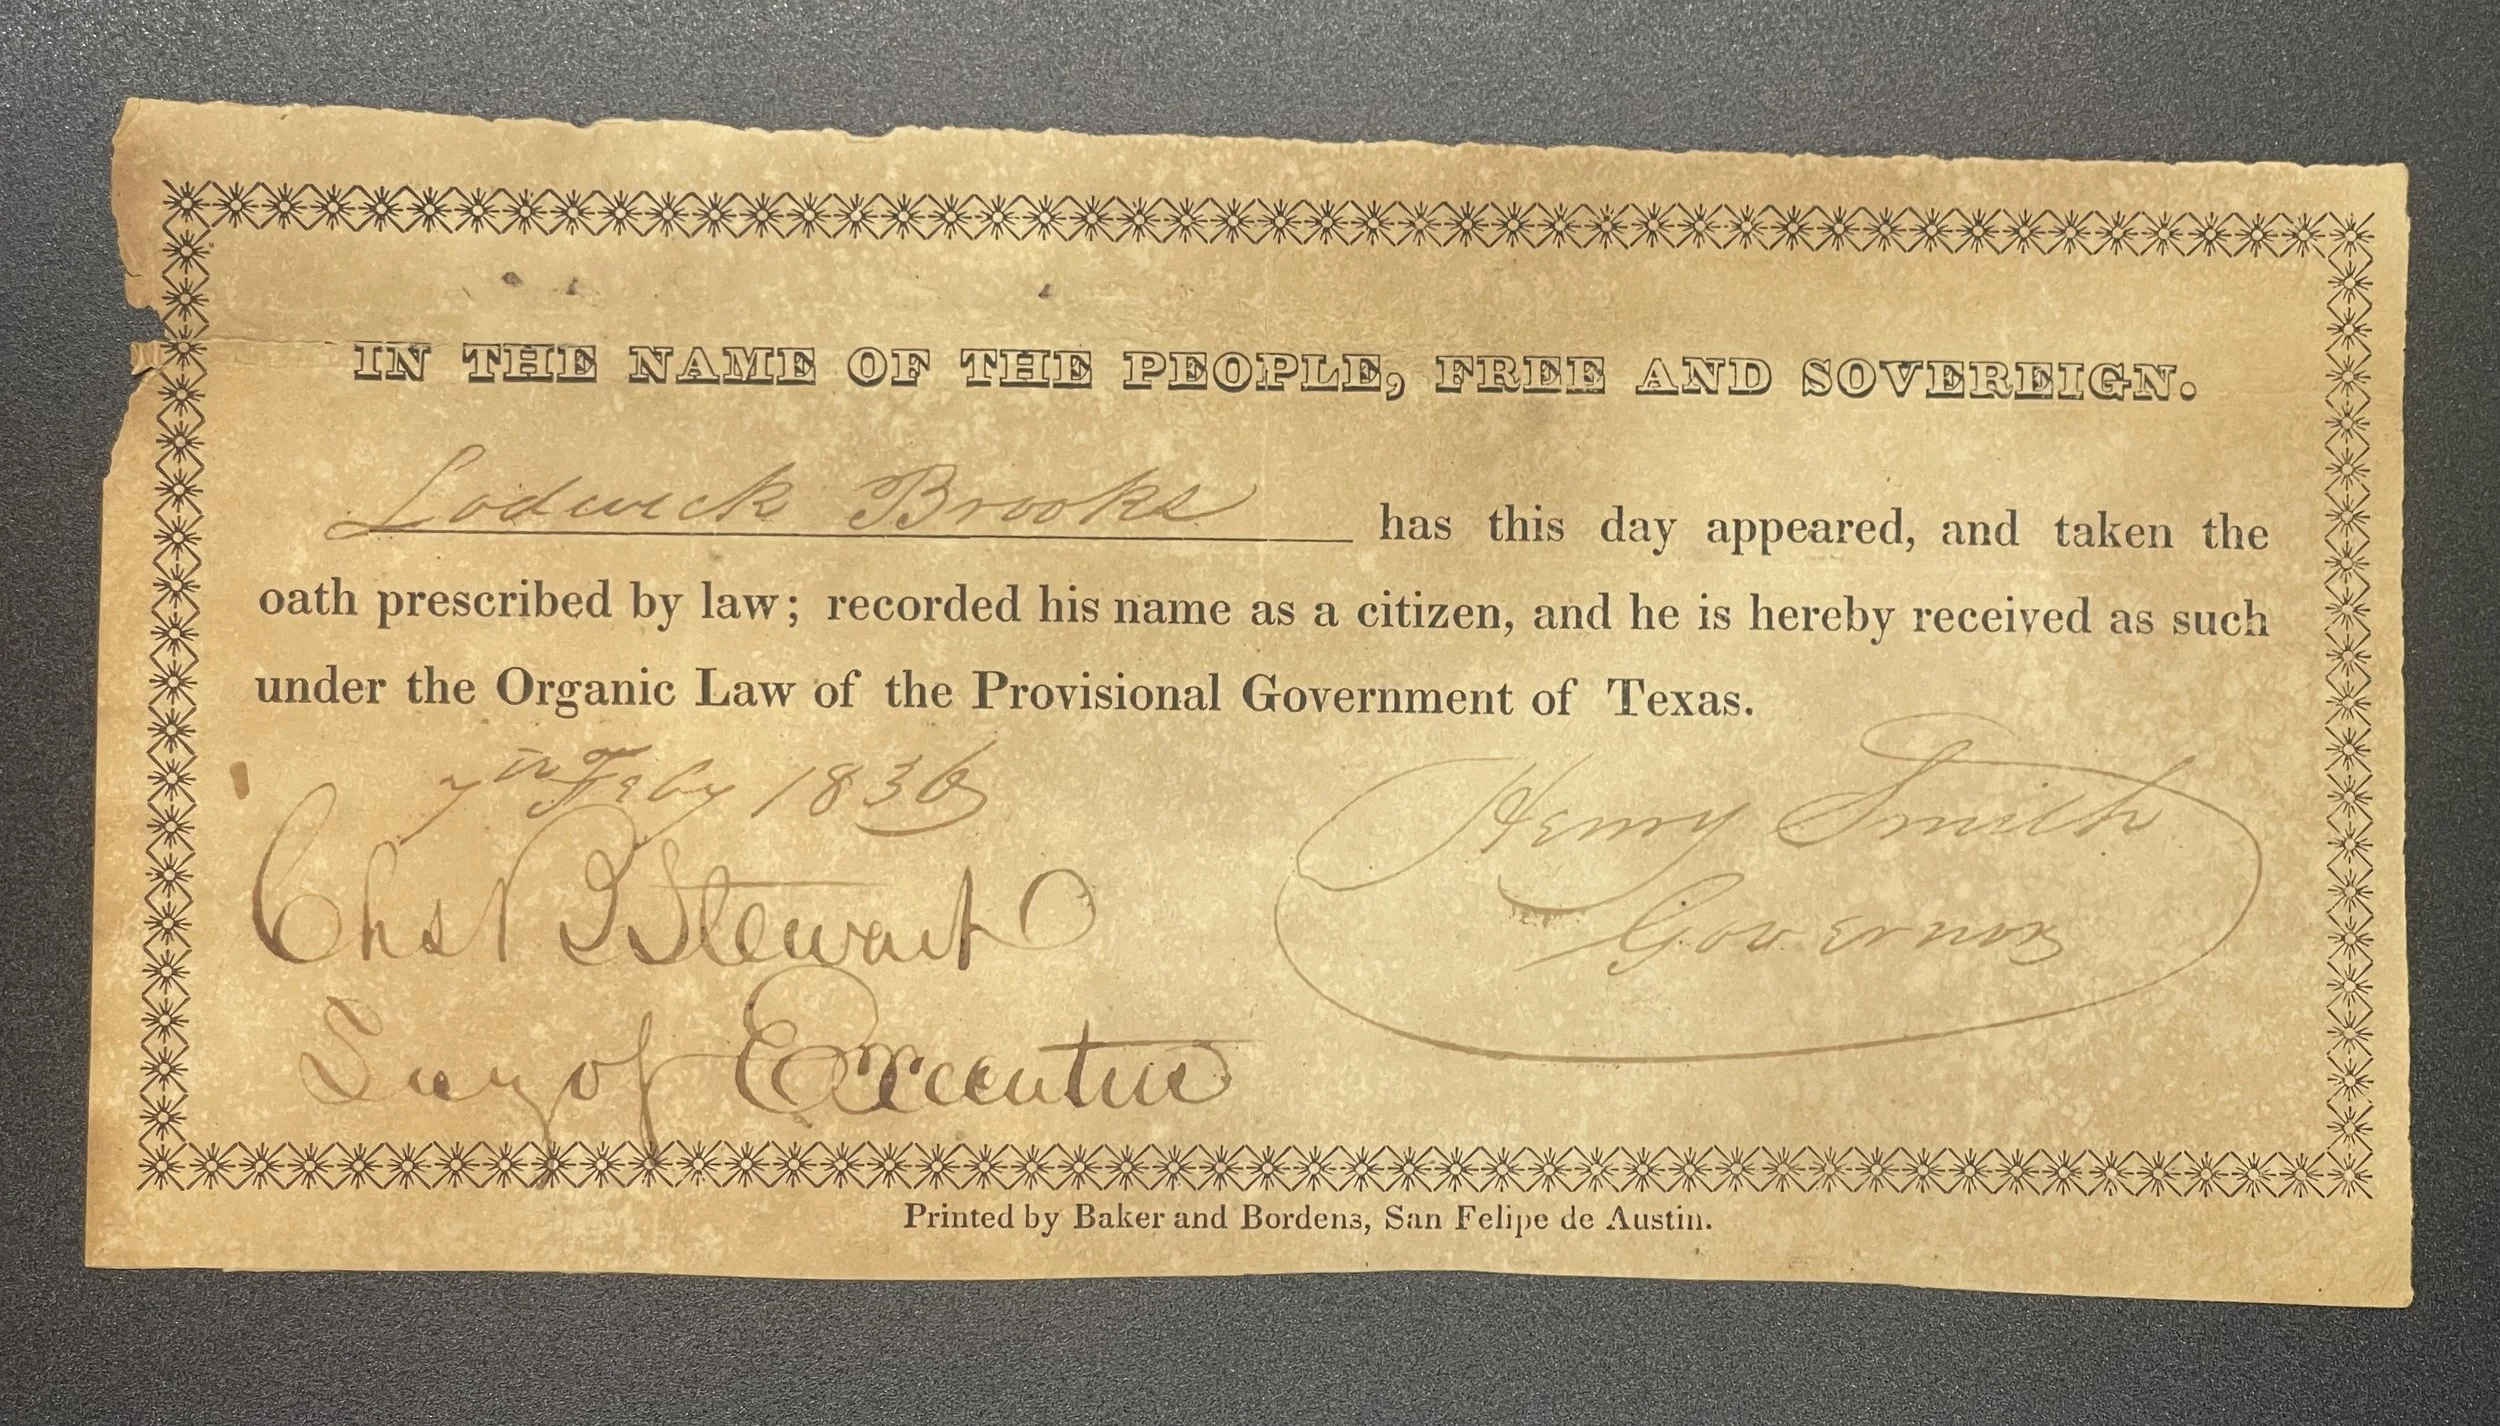 IN THE NAME OF THE PEOPLE, FREE AND SOVEREIGN.
Lodwick Brooks has this day appeared, and taken the
oath prescribed by law; recorded his name as a citizen, and he is hereby received as such
under the Organic Law of the Provisional Government of Texas.
7th Feby 1836
Henry Smith
Governor
Chas B Stewart
Secy of Executive
Printed by Baker and Bordens, San Felipe de Austin.